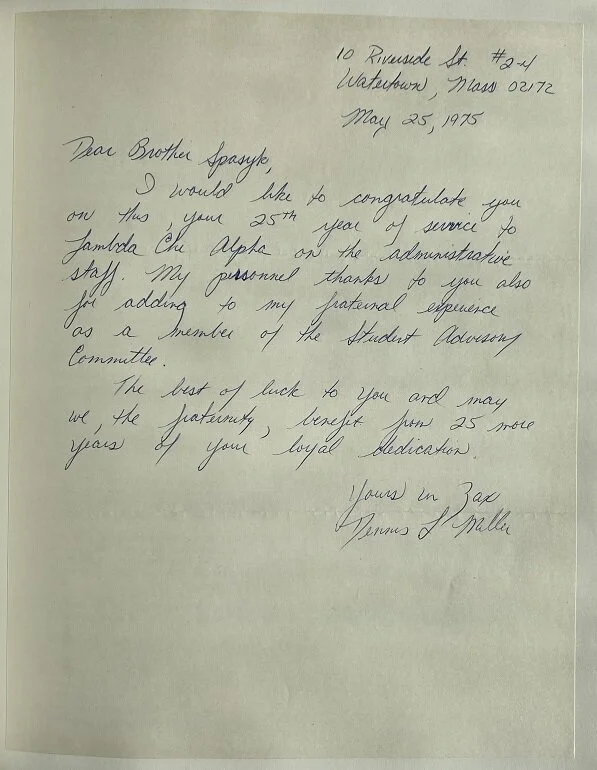 10 Riverside St. #2-4
Watertown, Mass 02172
May 25, 1975
Dear Brother Spasyk,
I would like to congratulate you
on this, your 25th year of service to
Lambda Chi Alpha on the administrative
staff. My personnel thanks to you also
for adding to my fraternal experience
as a member of the Student Advisory
Committee.
The best of luck to you and may
we, the fraternity, benefit from 25 more
years of your loyal dedication.
Yours in Zax
Dennis L Miller